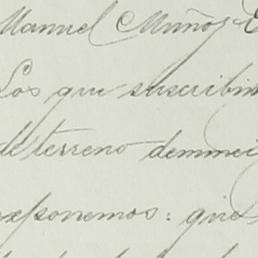 Manuel Muñoz
Los que suscribi
de terreno
exponemos: que